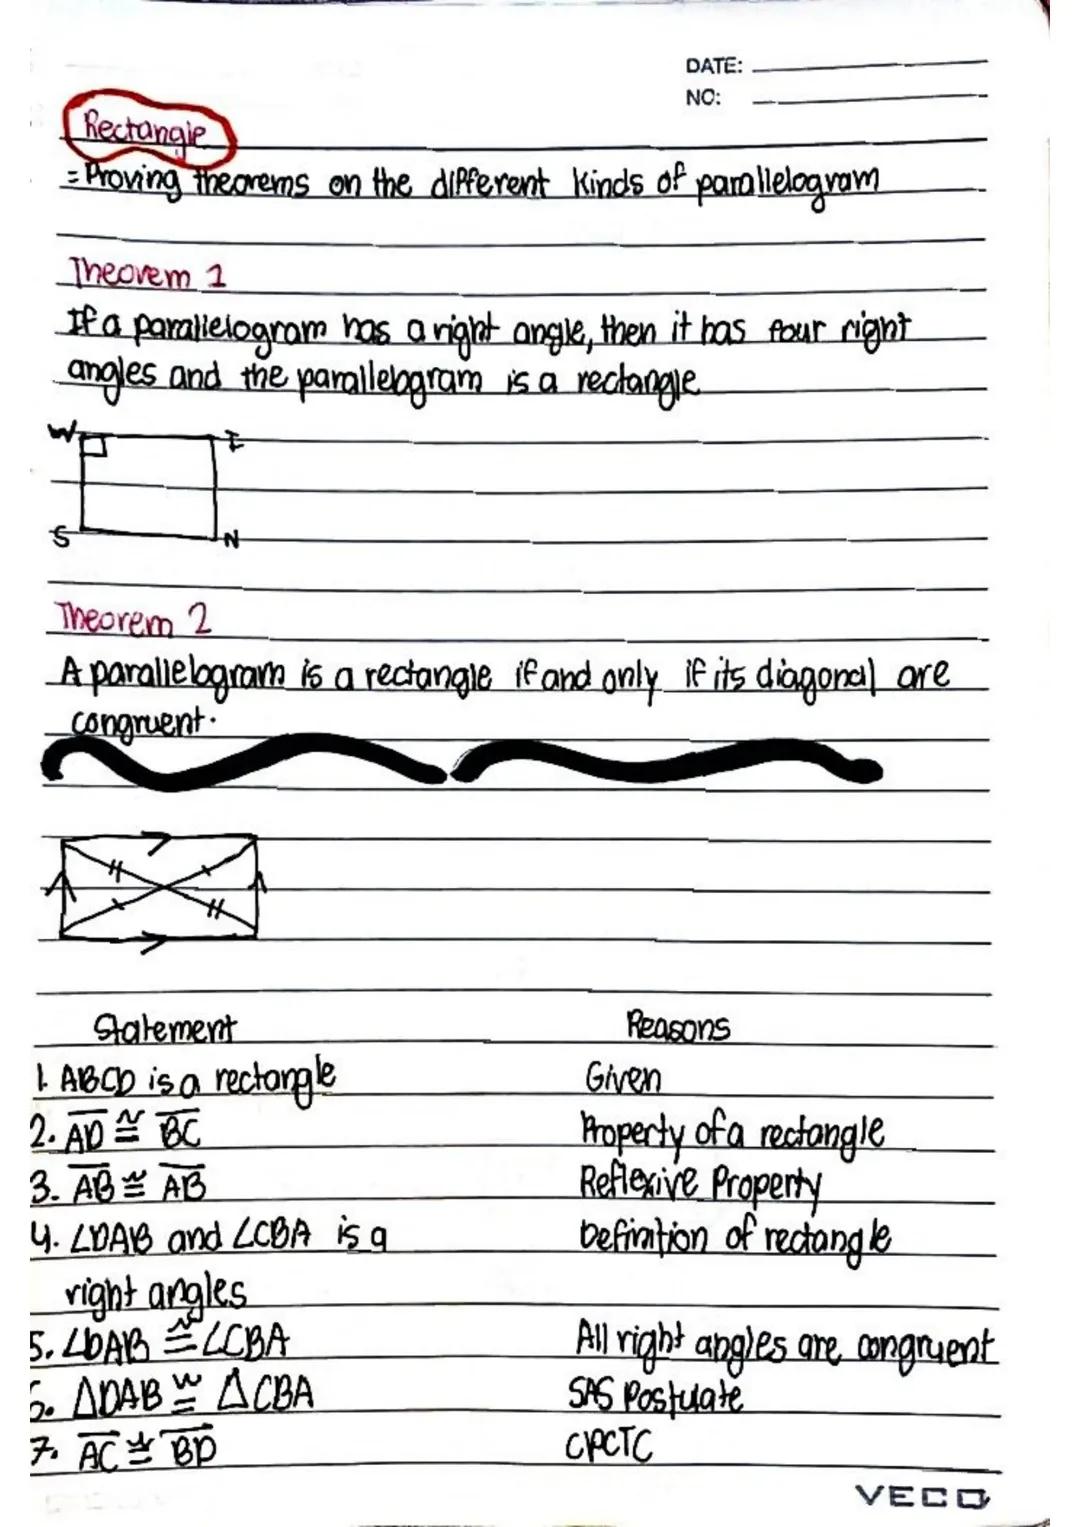 DATE:
NO:
Rectangle
= Proving theorems on the different kinds of parallelogram
Theorem 1
If a parallelogram has a right angle, then it has four right
angles and the parallelogram is a rectangle
W I
S N
Theorem 2
A parallelogram is a rectangle if and only if its diagonal are
congruent.
Statement Reasons
1. ABCD is a rectangle Given
2. A̅D̅ ≅ B̅C̅ Property of a rectangle
3. A̅B̅ ≅ A̅B̅ Reflexive Property
4. ∠DAB and ∠CBA is a Definition of rectangle
right angles
5. ∠DAB ≅ ∠CBA All right angles are congruent
6. △DAB ≅ △CBA SAS Postulate
7. A̅C̅ ≅ B̅D̅ CPCTC
VECO